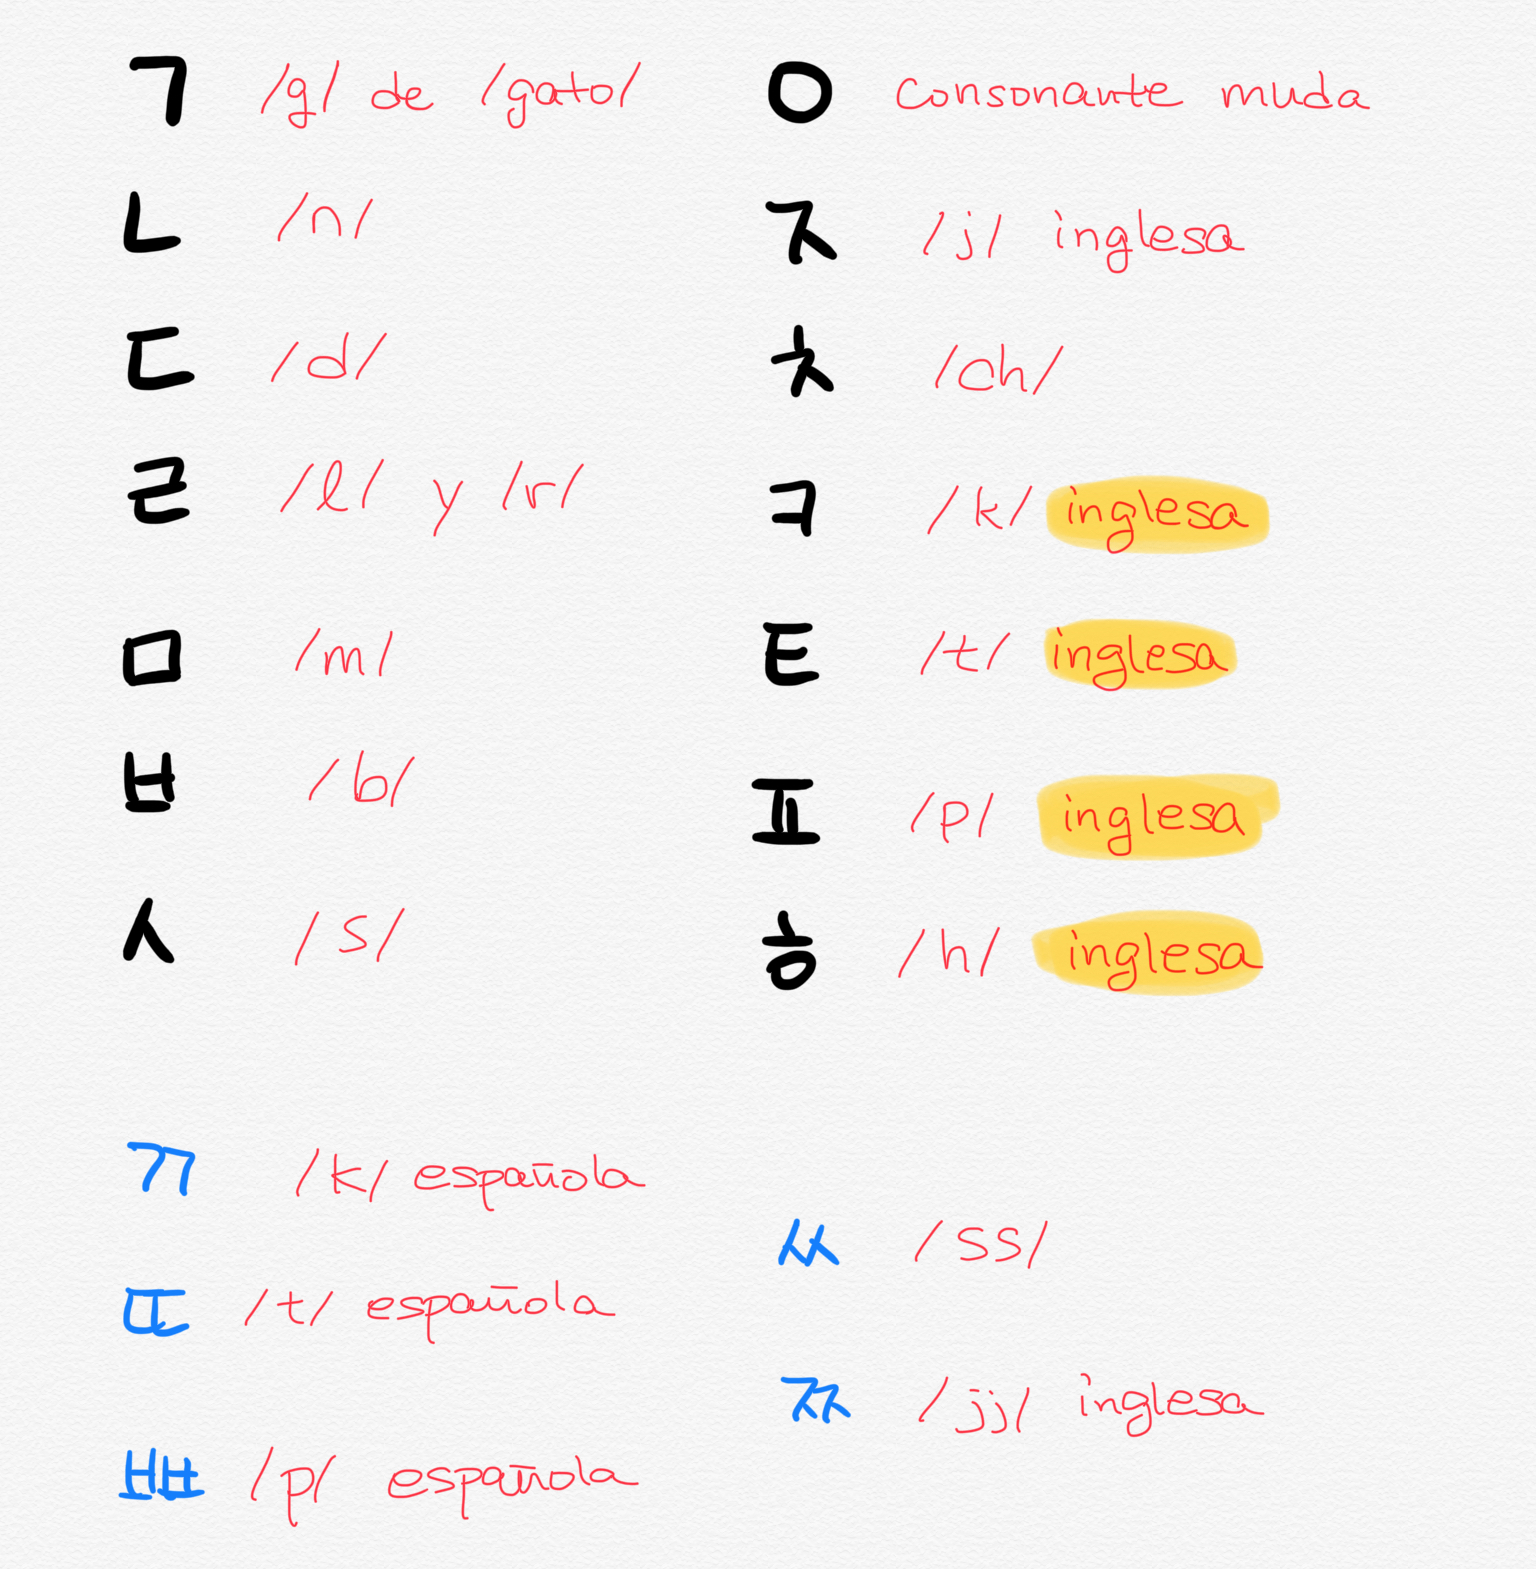 ㄱ /g/ de /gato/
ㄴ /n/
ㄷ /d/
ㄹ /l/ y /r/
ㅁ /m/
ㅂ /b/
ㅅ /s/
ㅇ consonante muda
ㅈ /j/ inglesa
ㅊ /ch/
ㅋ /k/ inglesa
ㅌ /t/ inglesa
ㅍ /p/ inglesa
ㅎ /h/ inglesa
ㄲ /k/ española
ㄸ /t/ española
ㅃ /p/ española
ㅆ /ss/
ㅉ /jj/ inglesa